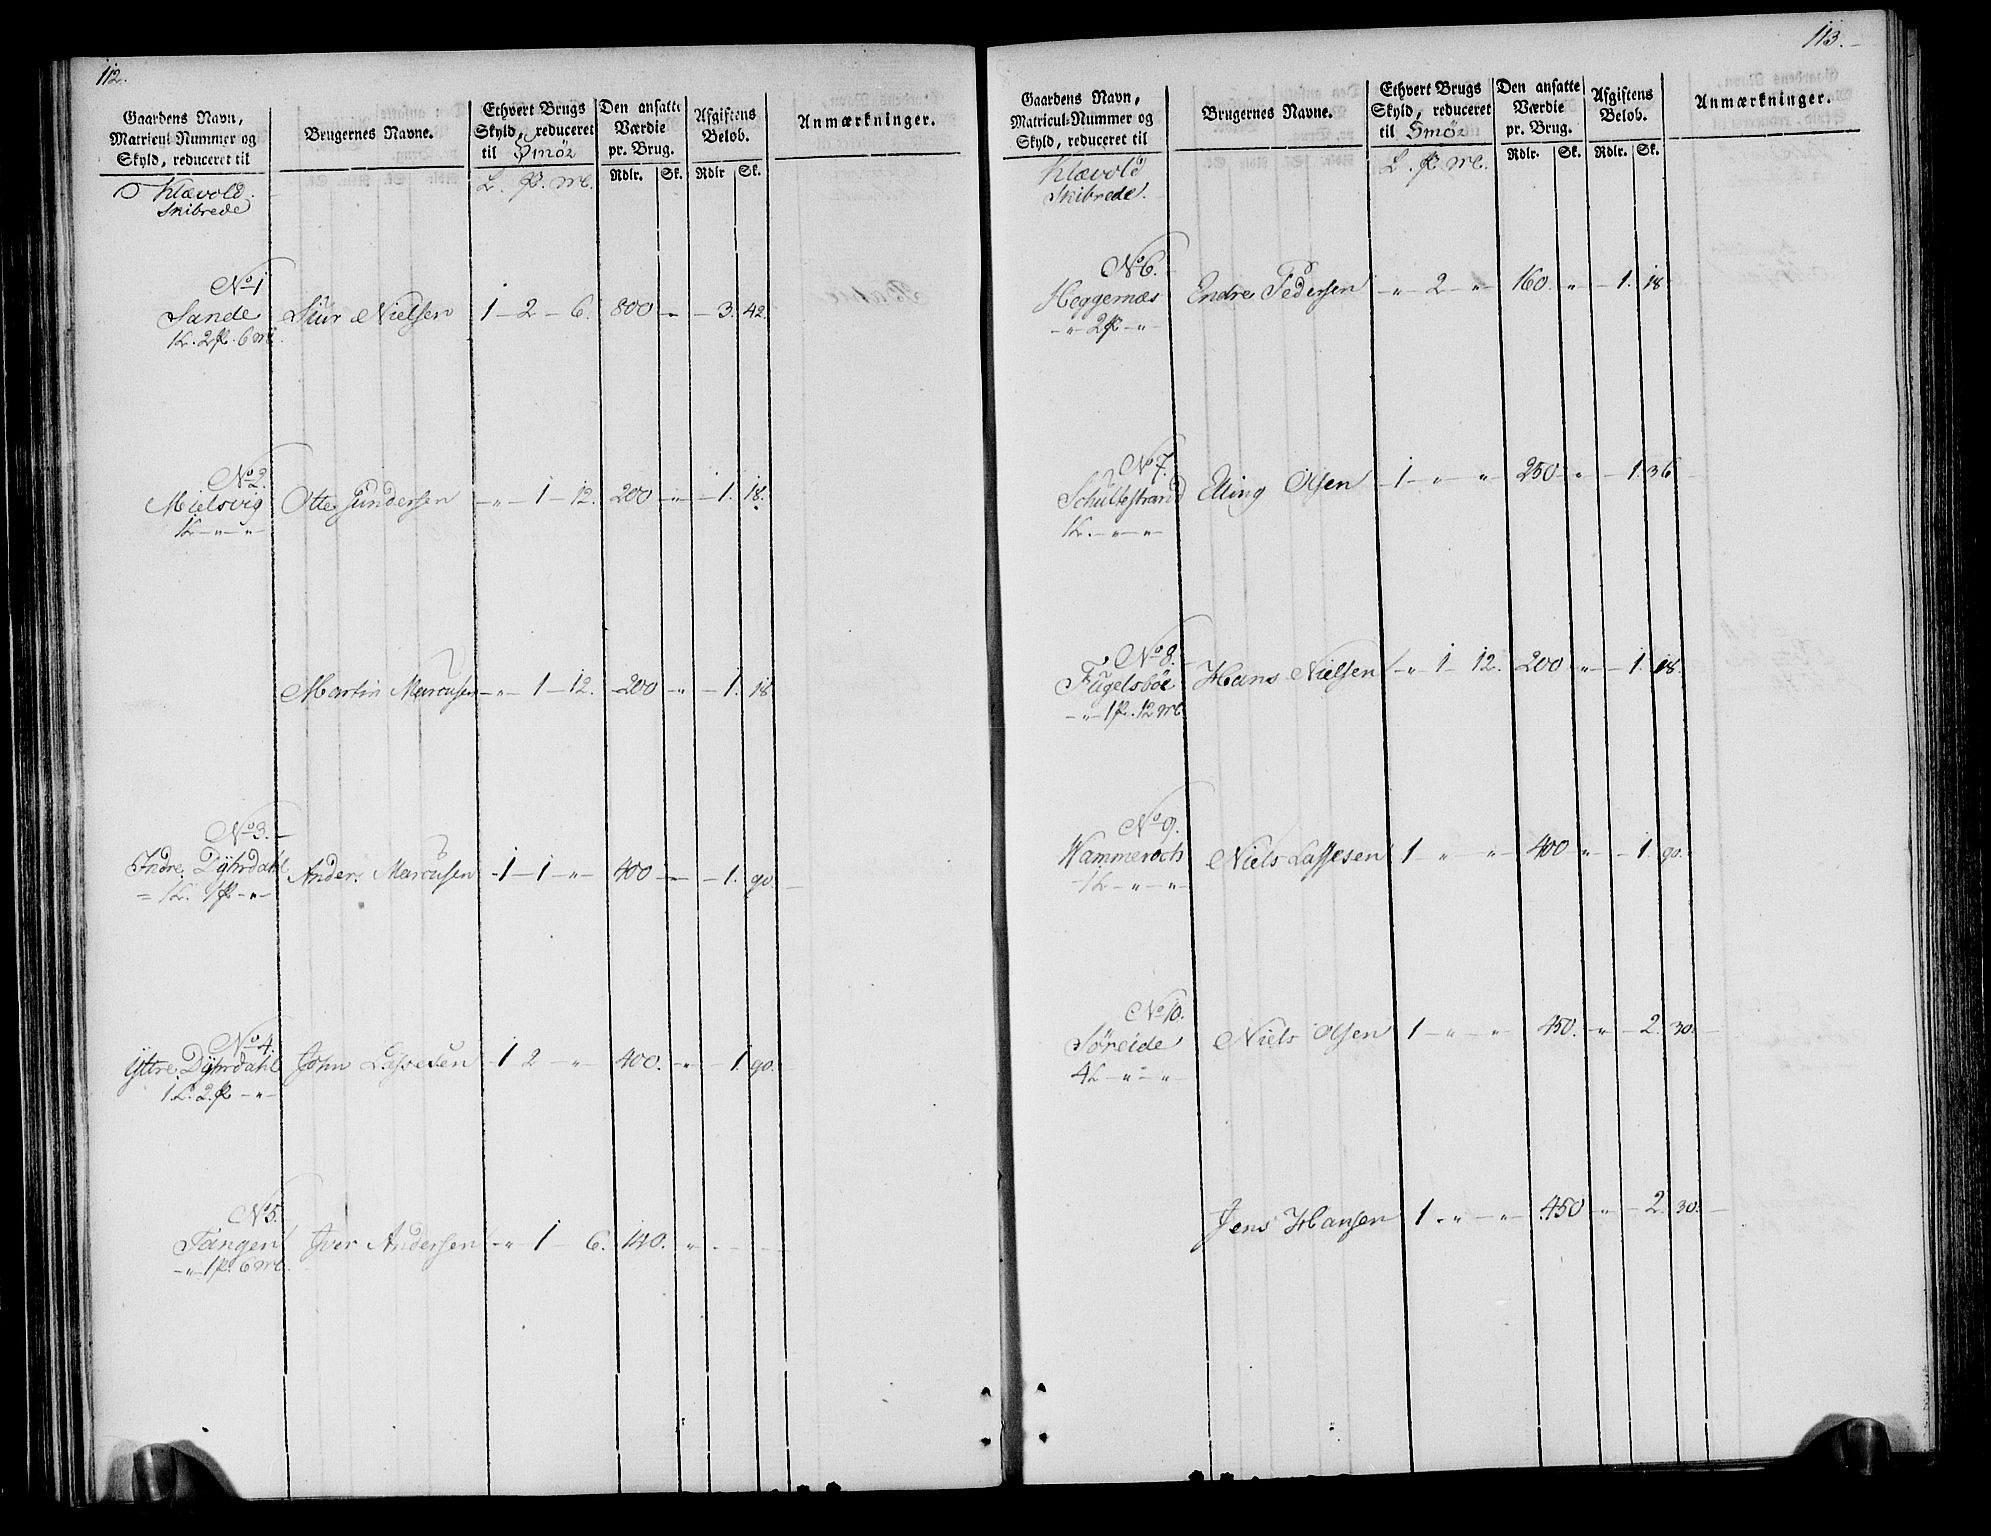 112.
Gaardens Navn, Matricul-Nummer og Skyld, reduceret til
Brugernes Navne.
Ethvert Brugs Skyld, reduceret til Smør
Den ansatte Værdie pr. Brug.
Afgiftens Beløb.
Anmærkninger.
L. P. Mk.
Rdlr. Sk. Rdlr Sk.
Klævold
Skibrede
No 1
Sande Siur Nielsen 1 - 2 - 6. 800 - " - 3. 42.
1L. 2P. 6 Mk.
No 2.
Mielsvig Otte Gundersen - " - 1 - 12. 200 - " - 1. 18.
1L - " - "
Martin Marcusen - " - 1 - 12. 200 - " - 1. 18
No 3.
Indre Dyhrdahl Anders Marcusen - 1 - 1 - " 400 - - 1. 90.
= 1L. 1P - " -
No 4.
Yttre Dyhrdahl John Lassesen - 1 2 - " 400. " - 1. 90.
1L. 2P - " -
No 5.
Tangen Iver Andersen - " 1 - 6. 140. " - - -
- " - 1P. 6 Mk.
113.
Gaardens Navn, Matricul-Nummer og Skyld, reduceret til
Brugernes Navne.
Ethvert Brugs Skyld, reduceret til Smør
Den ansatte Værdie pr. Brug.
Afgiftens Beløb.
Anmærkninger.
L. P. Mk.
Rdlr. Sk. Rdlr. Sk.
Klævold
Skibrede.
No 6.
Heggernæs Endre Pedersen - " 2 - " 160. " - 1. 18
- " - 2P - " -
No 7.
Schultestrand Elling Olsen - 1 - " " 250 - " - 1. 36
1L. - " - "
No 8.
Fugelsböe Hans Nielsen - " 1 - 12. 200 " - 1. 18.
- " - 1P. 12 Mk.
No 9.
Niels Lassesen 1 - " - " 400 " - 1. 90.
1L - " - "
No 10.
Söreide Niels Olsen 1 - " - " 450. " - 2. 30.
4L - " - " -
Jens Hansen 1 - " - " 450 " - 2. 30.